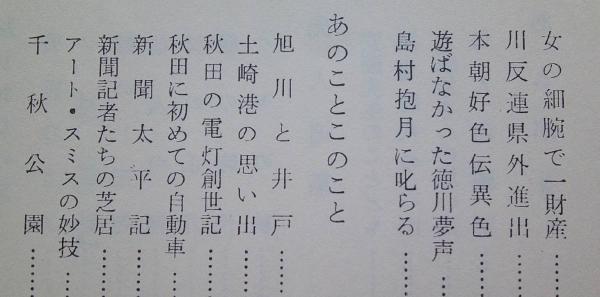 女の細腕で一財産……
川反連県外進出……
本朝好色伝異色……
遊ばなかった徳川夢声……
島村抱月に叱らる……
あのことこのこと
旭川と井戸……
土崎港の思い出……
秋田の電灯創世記……
秋田に初めての自動車……
新聞太平記……
新聞記者たちの芝居……
アート・スミスの妙技……
千秋公園……